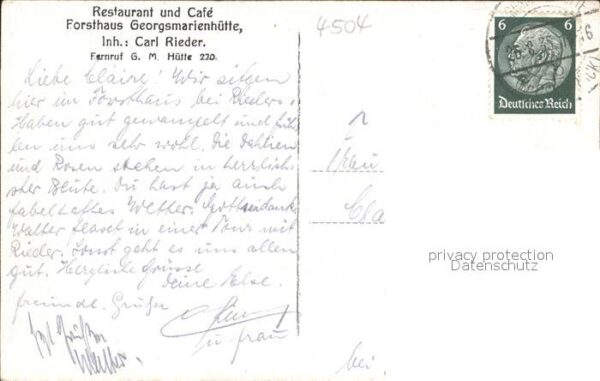 Restaurant und Café
Forsthaus Georgsmarienhütte,
Inh.: Carl Rieder.
Fernruf G. M. Hütte 220.
4504
6 6
Deutsches Reich
Liebe Claire! Wir sitzen
hier im Forsthaus bei Rieders,
haben gut
uns sehr wohl. Die Dahlien
und Rosen stehen in herrlich-
ster Blüte. Du hast ja auch
fabelhaftes Wetter. Gottseidank.
Walter in einer Tour mit
Rieder. Sonst geht es uns allen
gut. Herzliche Grüsse
Deine Else.
freundl. Grüße
u frau
Walter.
Frau
Cla
bei
privacy protection
Datenschutz